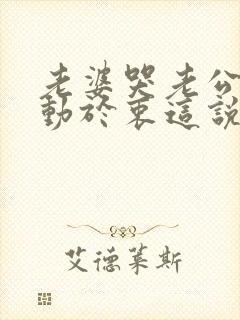 老婆哭老公
動於衷這説
艾德莱斯